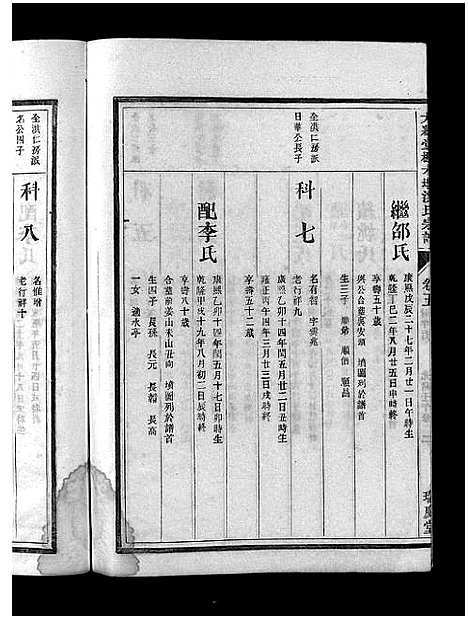 繼邵氏
康熙戊辰二十七年二月廿一日午時生
乾隆丁巳二年八月廿五日申時終
享壽五十歲
與公合葬裏安頭 墳圖列於譜首
生三子
金洪仁房派
日華公長子
科七
名有 字雲兆
老行祥九
康熙乙卯十四年閏五月廿二日丑時生
雍正丙午四年三月廿三日戌時終
享壽五十二歲
配李氏
康熙乙卯十四年閏五月十七日卯時生
乾隆甲戌十九年八月初二日辰時終
享壽八十歲
合葬前姜山未山丑向 墳圖列於譜首
生四子 長孫 長元 長高
一女 適水亭
金洪仁房派
名公四子
科八
名惟
老行祥十
卷五
瑞慶堂